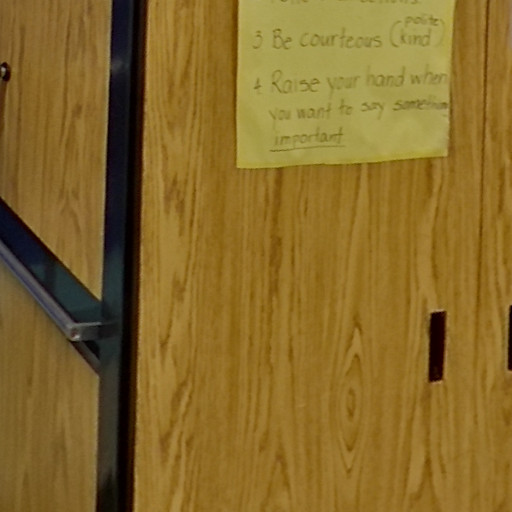 polite
3 Be courteous (kind)
4 Raise your hand when
you want to say something
important